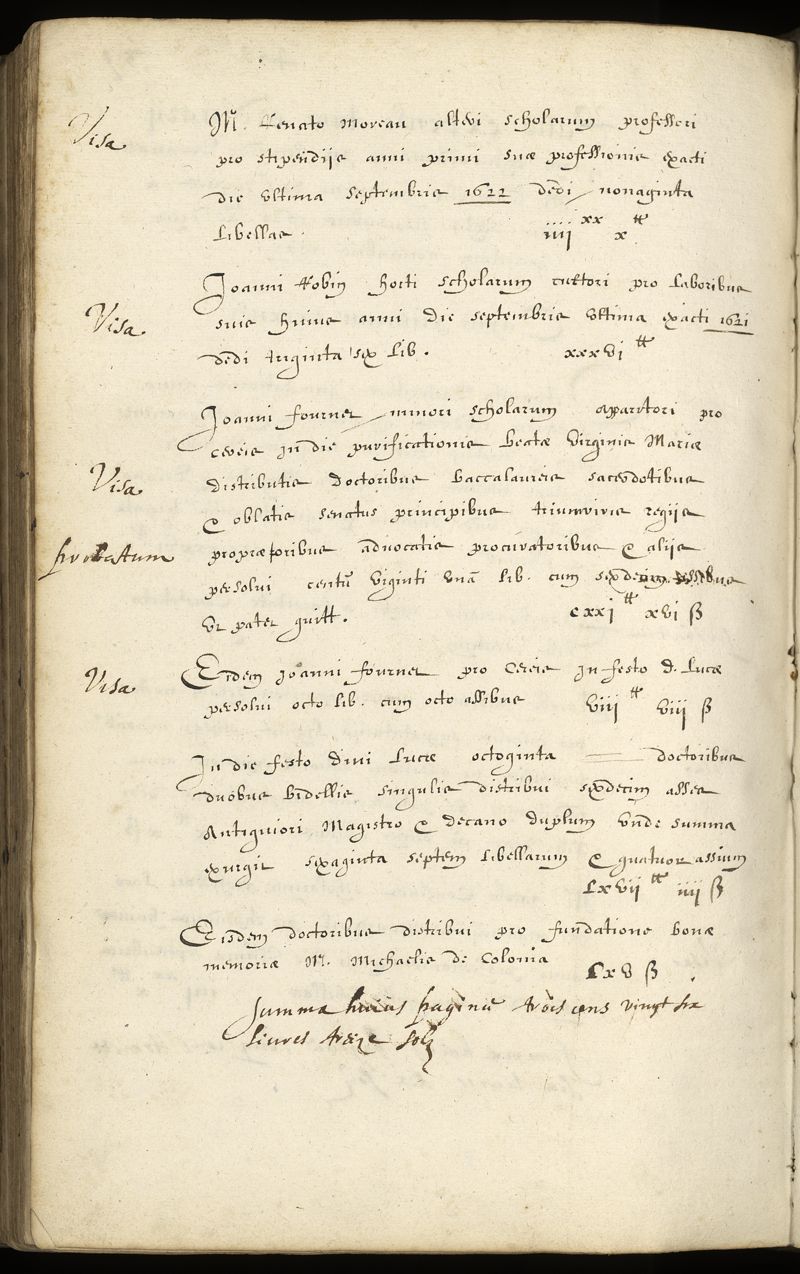 Visa
M. Renato Moreau alteri scholarum professori
pro stipendiis anni primi suae professionis exacti
die ultima septembris 1622 dedi nonaginta
libellas. iiii xx x tt
Visa
Joanni Robin horti scholarum cultori pro laboribus
suis huius anni die septembris ultima exacti 1621
dedi triginta sex lib. xxxvi tt
Joanni fournet minori scholarum apparitori pro
cereis in die purificationis beatae virginis Mariae
Visa
distributis doctoribus baccalaureis sacerdotibus
& oblatis senatus principibus triumviris regiis
probatum
propraetoribus advocatis procuratoribus & aliis
persolui centū viginti unā lib. cum sexdecim assibus
ut patet quitt. cxxi tt xvi ß
Visa
Eidem Joanni fournet pro cereis in festo d. Lucae
persolui octo lib. cum octo assibus viii tt viii ß
In die festo divi Lucae octoginta doctoribus
duobus bidellis singulis distribui sexdecim asses
Antiquiori Magistro & decano duplum unde summa
exurgit sexaginta septem libellarum & quatuor assium
Lxvii tt iiii ß
Eisdem doctoribus distribui pro fundatione bonae
memoriae M. Michaelis de Colonia Lxv ß
summa huius paginae trois cens vingt six
livres treize solz